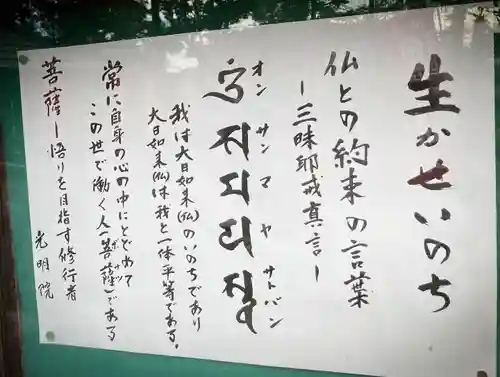 生かせいのち
仏との約束の言葉
ー三昧耶戒真言ー
オン サン マ ヤ サトバン
我は大日如来(仏)のいのちであり
大日如来(仏)は我と一体平等である。
常に自身の心の中にとどめて
この世で働く人「菩薩」である
ボサツ
菩薩ー悟りを目指す修行者
光明院